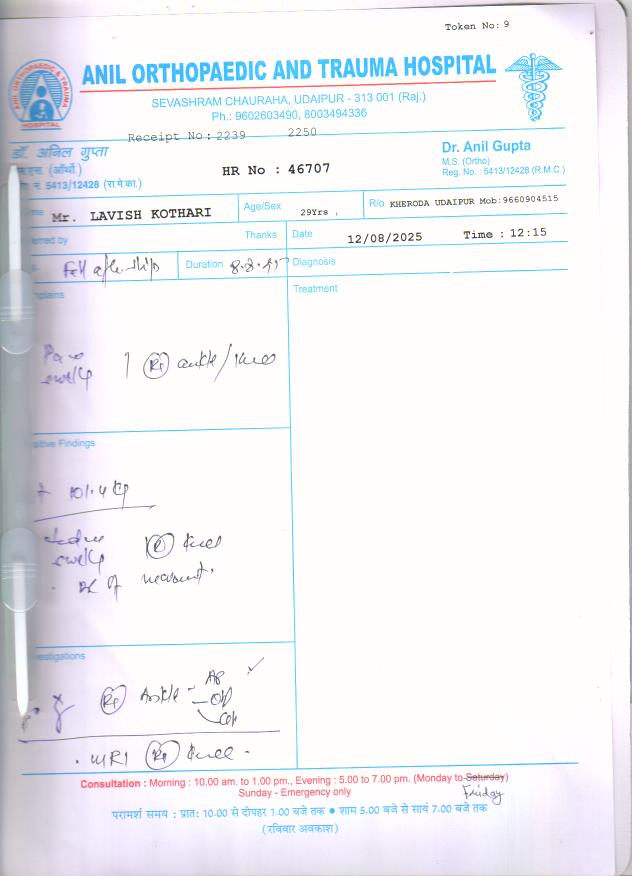 Token No: 9
ANIL ORTHOPAEDIC AND TRAUMA HOSPITAL
ANIL ORTHOPAEDIC & TRAUMA HOSPITAL
SEVASHRAM CHAURAHA, UDAIPUR - 313 001 (Raj.)
Ph.: 9602603490, 8003494336
Receipt No: 2239 2250
डॉ. अनिल गुप्ता
एम.एस. (ऑर्थो)
नं. 5413/12428 (रा.मे.का.)
HR No : 46707
Dr. Anil Gupta
M.S. (Ortho)
Reg. No. : 5413/12428 (R.M.C.)
Mr. LAVISH KOTHARI Age/Sex 29Yrs , R/o KHERODA UDAIPUR Mob:9660904515
erred by Thanks Date 12/08/2025 Time : 12:15
Fell Duration Diagnosis
plains Treatment
Rt ankle/knee
sitive Findings
101.4
Rt knee
of movement.
estigations
Rt Ankle - AP
MRI Rt knee
Consultation : Morning : 10.00 am. to 1.00 pm., Evening : 5.00 to 7.00 pm. (Monday to Saturday)
Friday
Sunday - Emergency only
परामर्श समय : प्रातः 10-00 से दोपहर 1-00 बजे तक • शाम 5.00 बजे से सायं 7-00 बजे तक
(रविवार अवकाश)